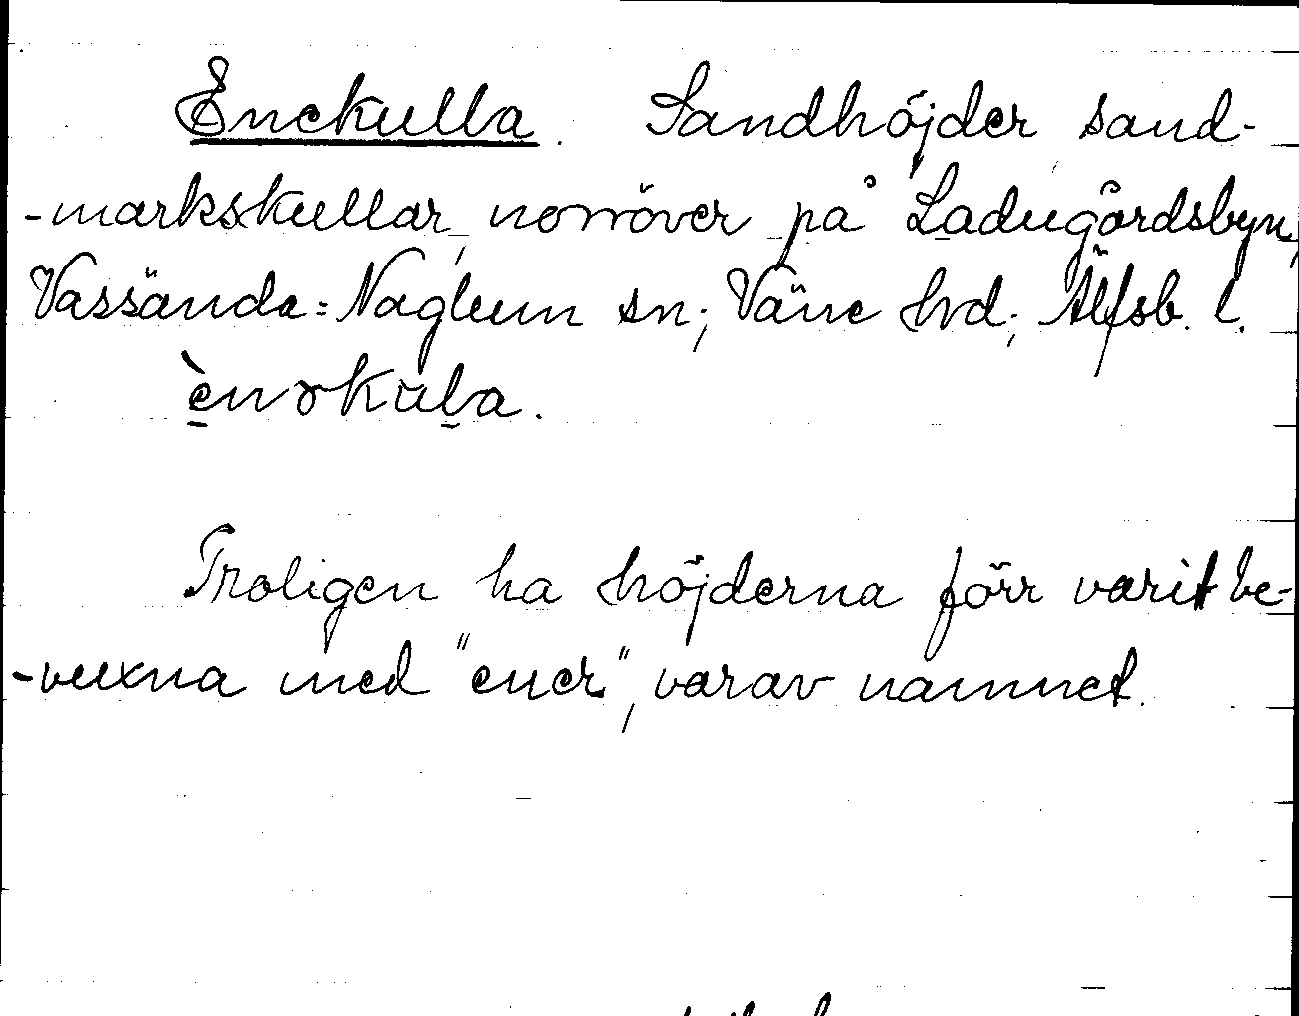 Enekulla. Sandhöjder sand-
-markskullar, norröver på Ladugårdsbyn,
Vassända=Naglum sn; Väne hrd; Älfsb. l.
ènəkula.
Troligen ha höjderna förr varit be-
-vuxna med "ener", varav namnet.